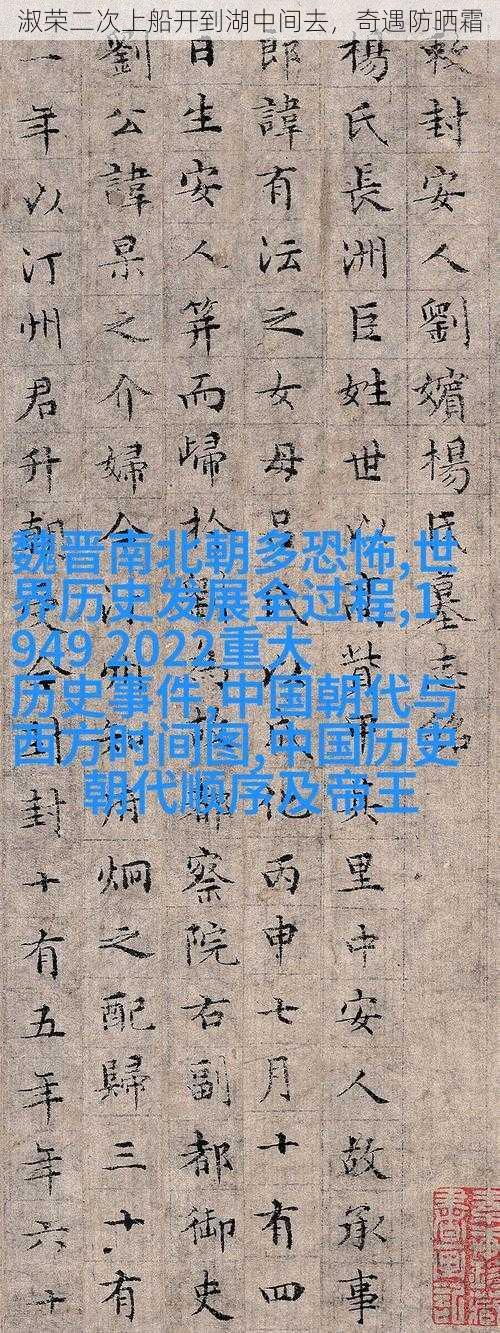 淑荣二次上船开到湖中间去，奇遇防晒霜
敕封安人劉嬪楊氏墓志銘
楊氏長洲臣姓世以高貲甲其里中安人故承事
郎諱有沄之女母吕氏以成化丙申七月十有四
日生安人笄而歸於劉為故都察院右副都御史
劉公諱杲之介婦今汀州知府炯之配歸三十有
一年以汀州君升朝受今封十有五年年六十
魏晋南北朝多恐怖,世
界历史发展全过程,1
949 2022重大
历史事件,中国朝代与
西方时间图,中国历史
朝代顺序及帝王